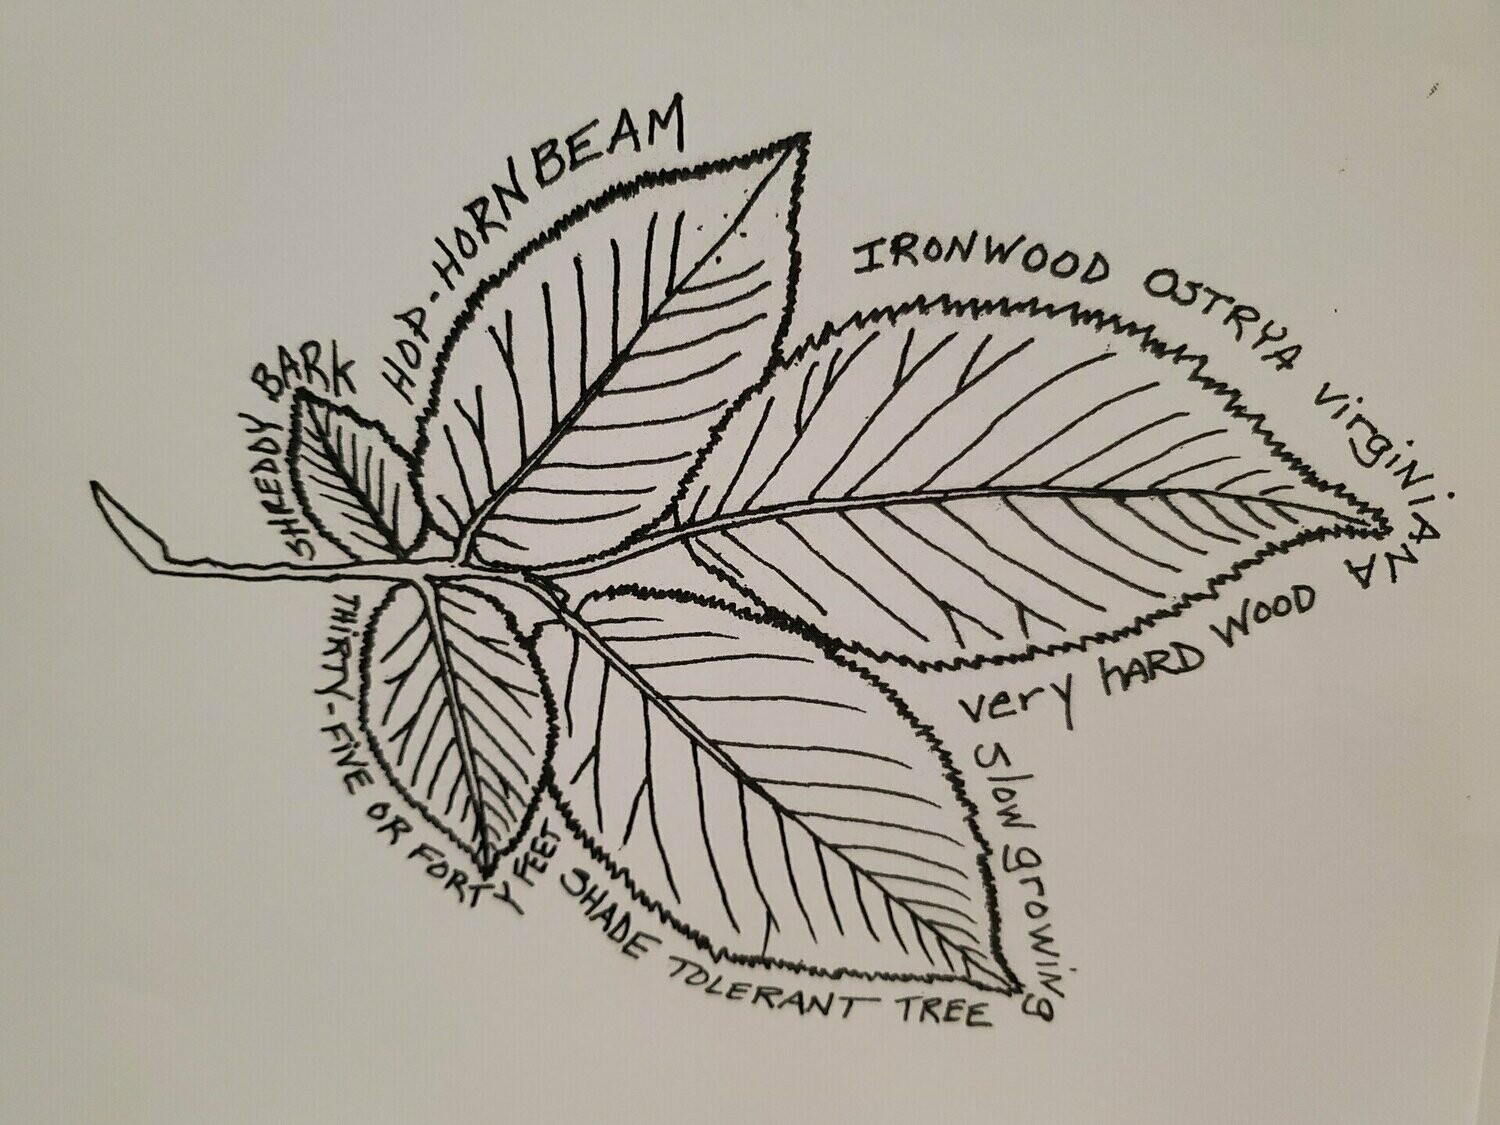 SHREDDY BARK
HOP-HORNBEAM
IRONWOOD OSTRYA virgiNiANA
very hARD WOOD
slow growing
SHADE TOLERANT TREE
THiRTY-FiVE OR FORTY FEET